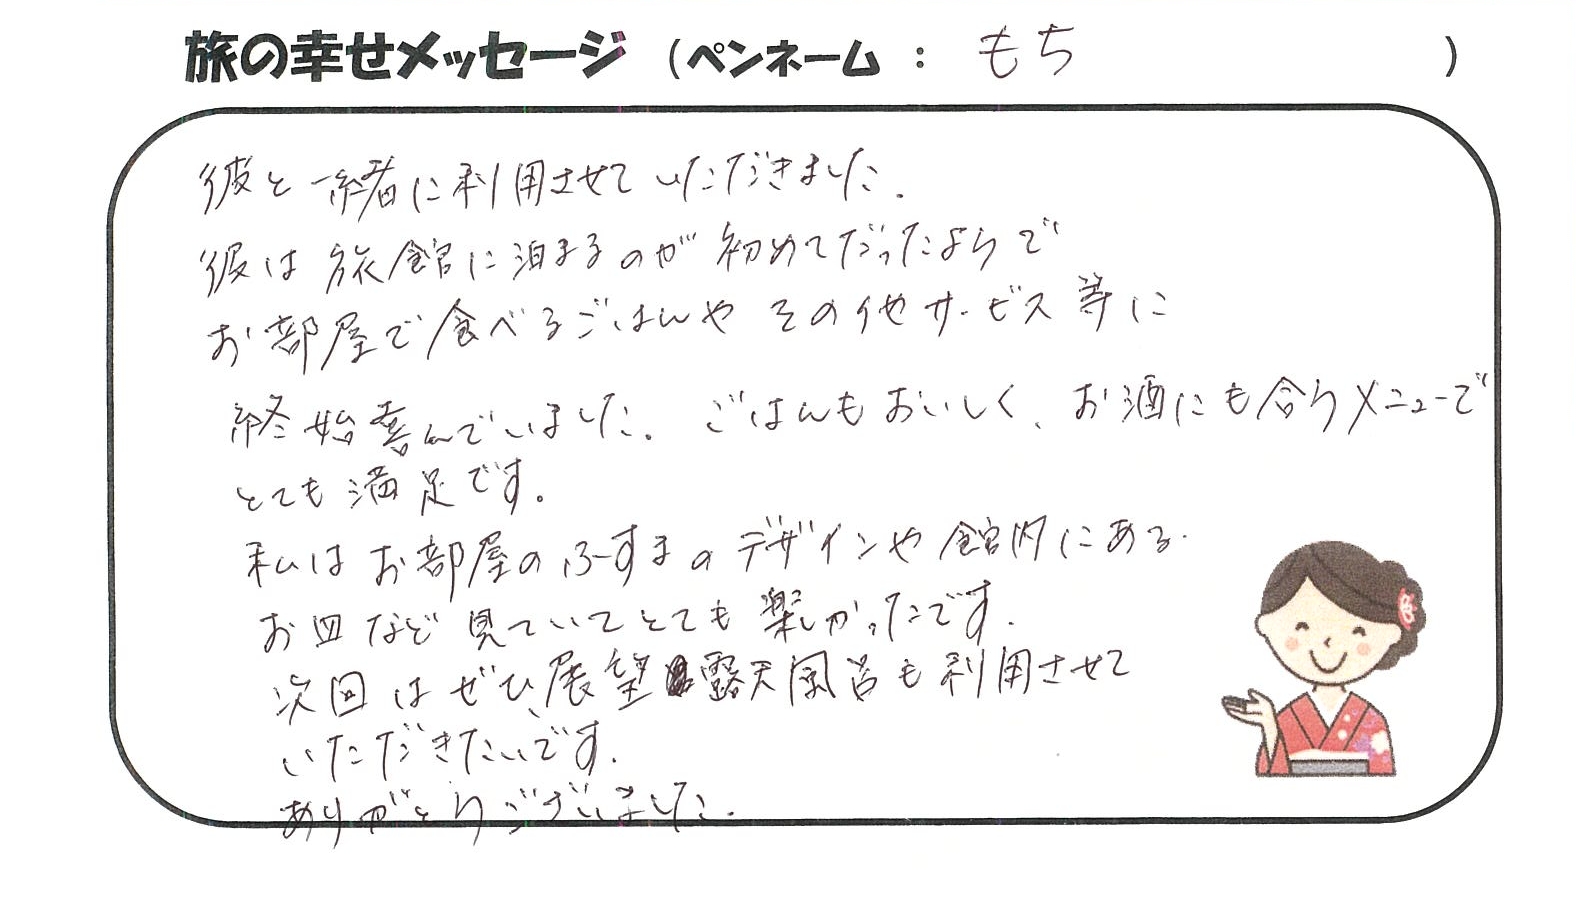 旅の幸せメッセージ (ペンネーム : もち )
彼と一緒に利用させていただきました.
彼は旅館に泊まるのが初めてだったようで
お部屋で食べるごはんやその他サービス等に
終始喜んでいました. ごはんもおいしく、お酒にも合うメニューで
とても満足です。
私はお部屋のふすまのデザインや館内にある
お皿など見ていてとても楽しかったです.
次回はぜひ、展望露天風呂も利用させて
いただきたいです.
ありがとうございました.